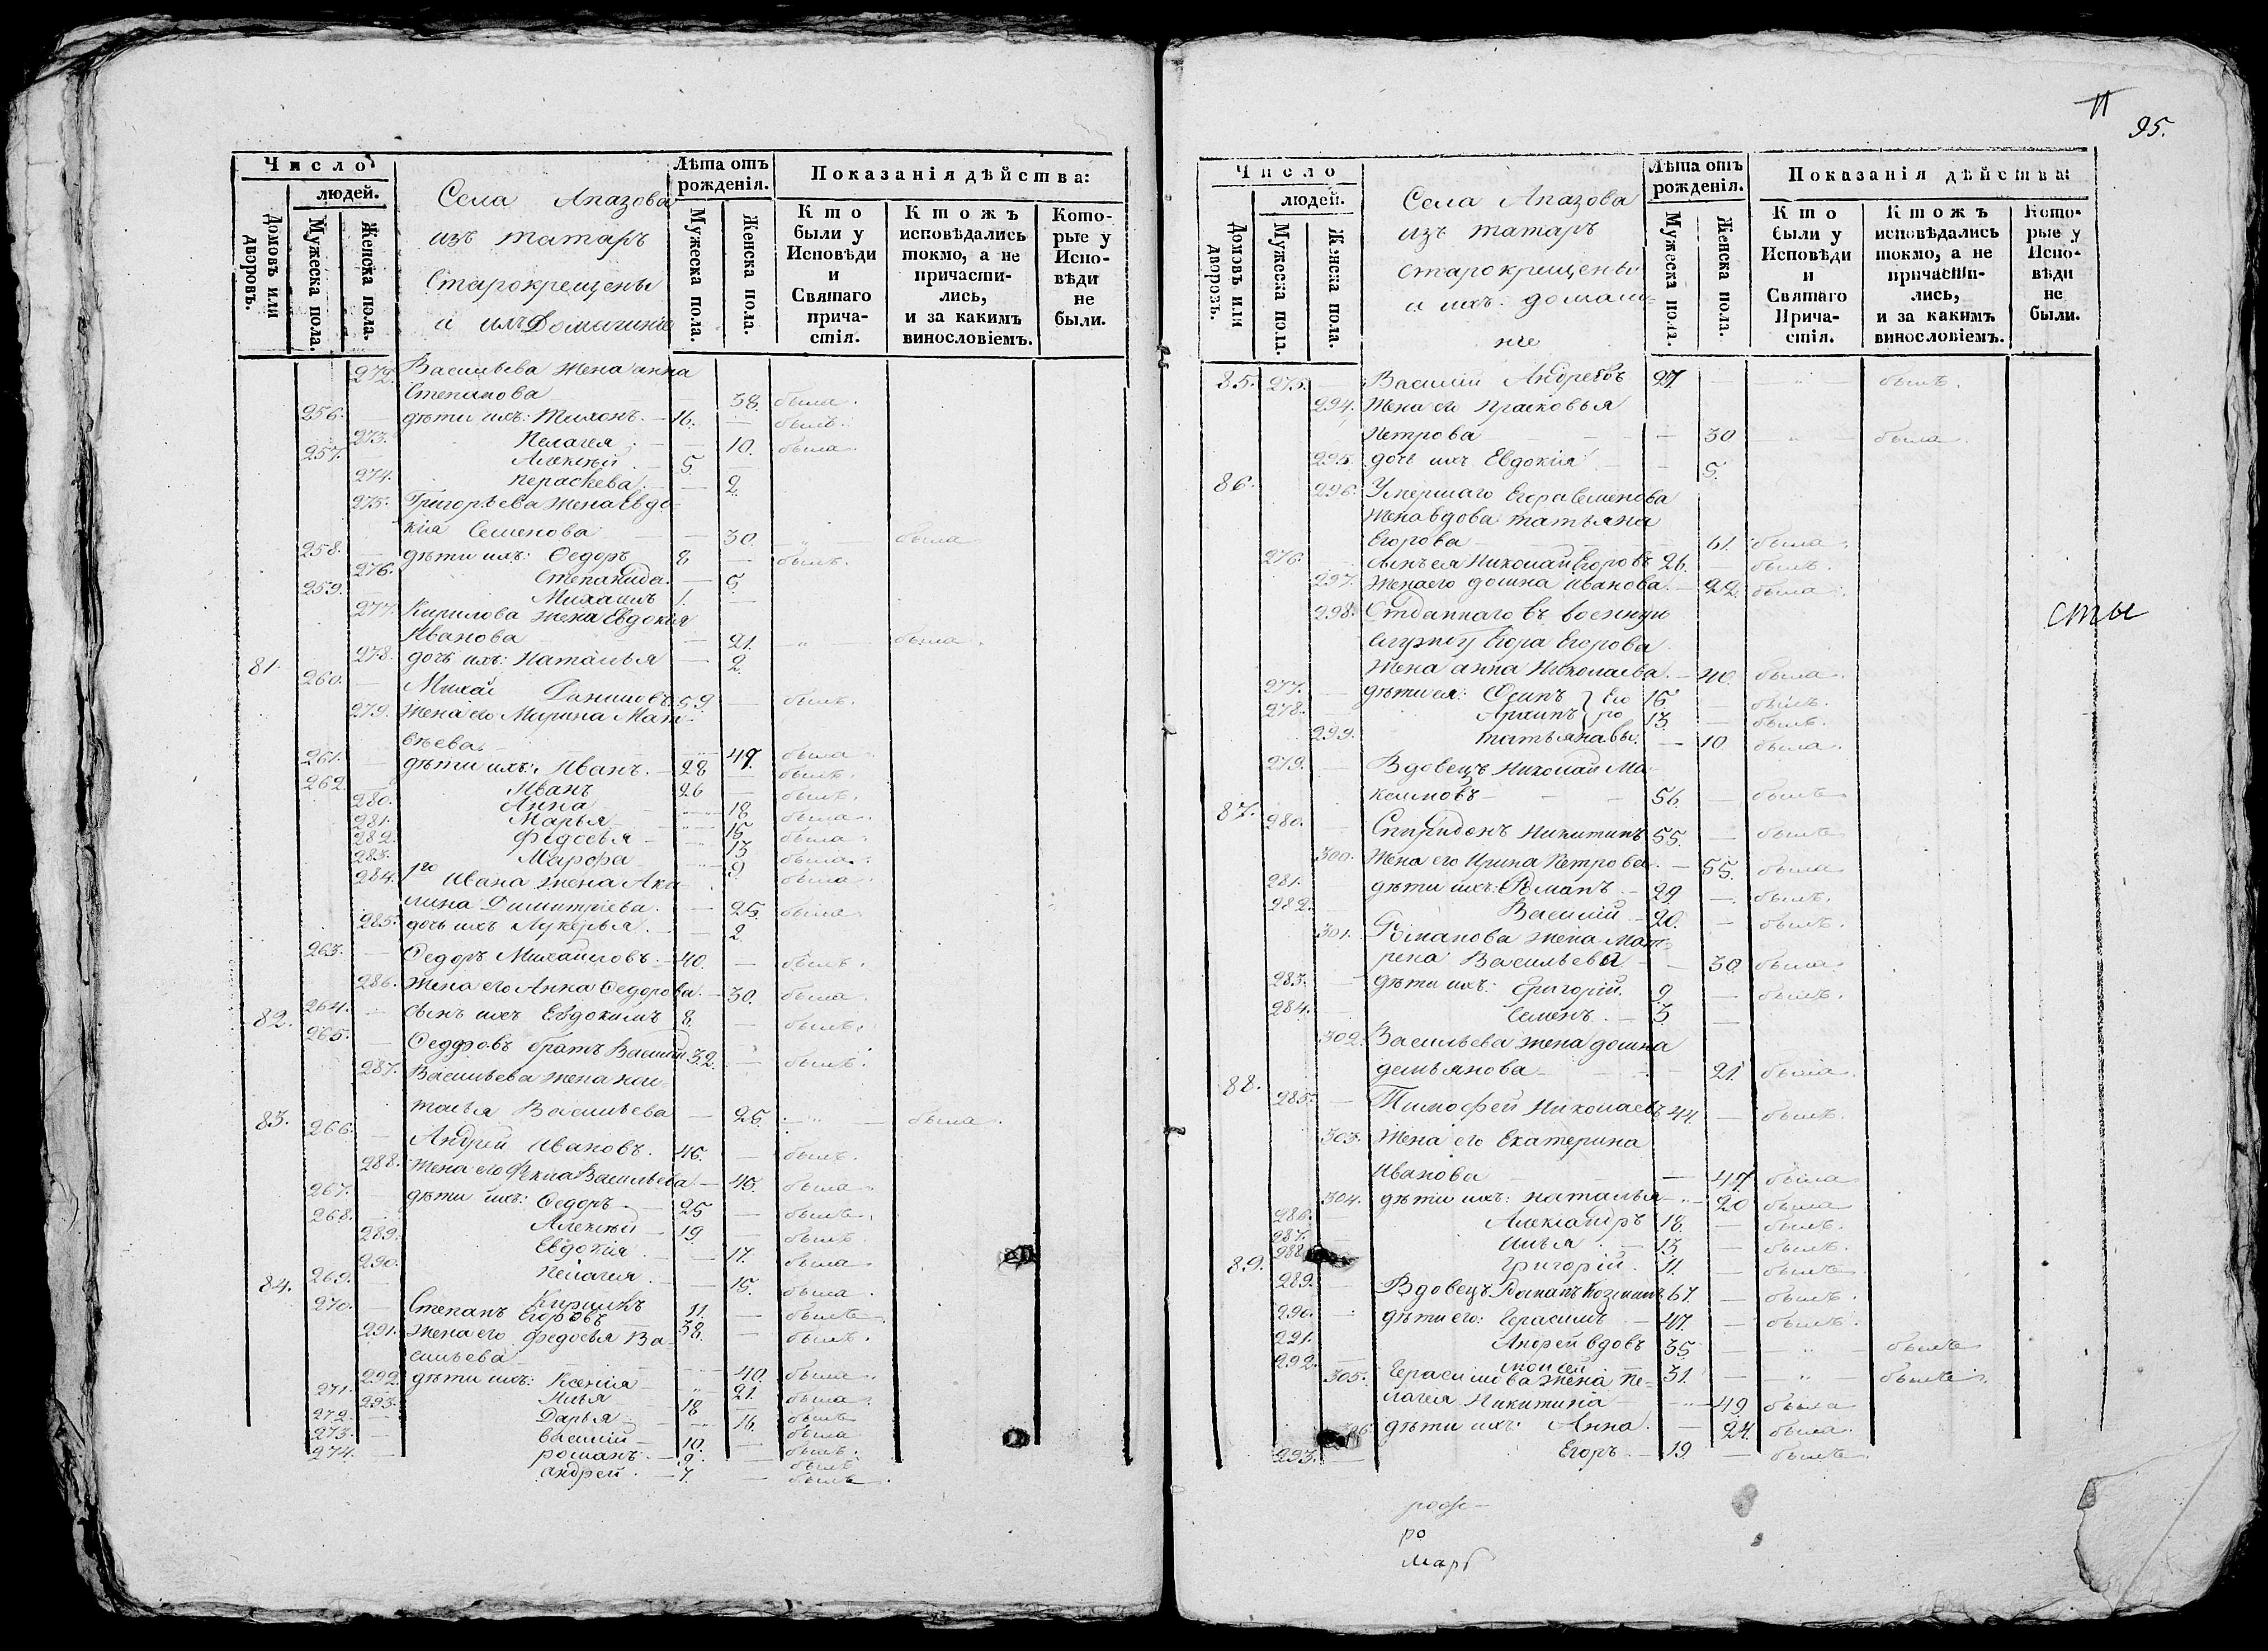 Число
людей.
Домовъ или дворовъ.
Мужеска пола.
Женска пола.
Села Апазова
изъ татаръ
Старокрещены
и ихъ Домашніе
Лѣта отъ рожденія.
Мужеска пола.
Женска пола.
Показанія дѣйства:
Кто были у Исповѣди и Святаго причастія.
Ктожъ исповѣдались токмо, а не причастились, и за какимъ винословіемъ.
Которые у Исповѣди не были.
272. Васильева жена анна
Степанова 38. была.
256. дѣти ихъ: Тихонъ. 16. былъ.
273. Пелагея 10. была.
257. Алексѣй 5
274. параскева. 2.
275. Григорьева жена Евдо-
кія Семенова 30. была
258. дѣти ихъ: Ѳедоръ 8 былъ.
276. Степанида. 5.
259. Михаилъ 1.
277. Кирилова жена Евдокія
Иванова 21. была.
278. дочь ихъ: Наталья 2.
81. 260. Михай Даниловъ. 59 былъ.
279. жена его Марина Мат-
вѣева. 47. была
261. дѣти ихъ: Иванъ. 28 былъ.
262. Иванъ 26 былъ.
280. Анна 18 была.
281. Марья 15 была.
282. Федосья 13 была.
283. Марфа 9. была.
284. 1го Ивана жена Аку-
лина Димитріева. 25. была
285. дочь ихъ Лукерья. 2.
263. Ѳедоръ Михайловъ. 40. былъ.
286. Жена его Анна Ѳедорова. 30. была.
264. сынъ ихъ Евдокимъ 8. былъ.
82. 265. Ѳедоровъ братъ Василій 32. былъ.
287. Васильева жена на-
талья Васильева 25. была.
83. 266. Андрей Ивановъ. 46. былъ.
288. Жена его Фекла Васильева 45. была.
267. дѣти ихъ: Ѳедоръ. 25 былъ.
268. Алексѣй 19 былъ.
289. Евдокія 17. была.
290. Пелагея. 15. была.
84. 269. Кирилъ 11. былъ
270. Степанъ Егоровъ 38. былъ.
291. Жена его федосья Ва-
сильева 40. была.
292. дѣти ихъ: Ксенія 21. была.
271. Илья 18 былъ
293. Дарья 16. была
272. василій 10. былъ.
273. романъ. 9. былъ
274. андрей. 7. былъ.
95.
Число
людей.
Домовъ или дворовъ.
Мужеска пола.
Женска пола.
Села Апазова
изъ татаръ
старокрещены
и ихъ домаш-
ніе
Лѣта отъ рожденія.
Мужеска пола.
Женска пола.
Показанія дѣйства:
Кто были у Исповѣди и Святаго Причастія.
Ктожъ исповѣдались токмо, а не причастились, и за какимъ винословіемъ.
Которые у Исповѣди не были.
85. 275. Василій Андреевъ 27. былъ.
294. Жена его Прасковья
Петрова 30 была.
295. дочь ихъ Евдокія 5.
86. 296. Умершаго Егора Семенова
жена вдова татьяна
Егорова 61. была.
276. сынъ ея Николай Егоровъ 26. былъ.
297. Жена его домна иванова. 22. была.
298. Отданнаго въ военную
службу Егора Егорова
жена анна Николаева. 40. была.
277. дѣти ея: Осипъ } Его 16 былъ.
278. Архипъ } ро 13. былъ.
299. татьяна. вы. 10 была.
279. Вдовецъ Николай Ма-
ксимовъ 56. былъ
87. 280. Спиридонъ Никитинъ 55. былъ
300. Жена его Ирина Петрова. 55. была
281. дѣти ихъ: Романъ 29 былъ.
282. Василій 20. былъ.
301. Романова жена Мат-
рена Васильева 30 была.
283. дѣти ихъ: Григорій. 9 былъ.
284. Семенъ. 3.
302. Васильева жена домна
демьянова 21. была.
88. 285. Тимофей Николаевъ 44. былъ.
303. Жена его Екатерина
Иванова 47 была
304. дѣти ихъ: наталья 20 была
286. Александръ 18. былъ.
287. Илья. 13 былъ.
288. Григорій. 11. былъ
89. 289. Вдовецъ Романъ Козминъ 67. былъ.
290. дѣти его: Герасимъ 47. былъ.
291. Андрей вдовъ 35 былъ
292. моисей 31. былъ.
305. Герасимова жена Пе-
лагея Никитина 49 была
306. дѣти ихъ: Анна. 24. была.
293. Егоръ. 19 былъ.
сты
ро